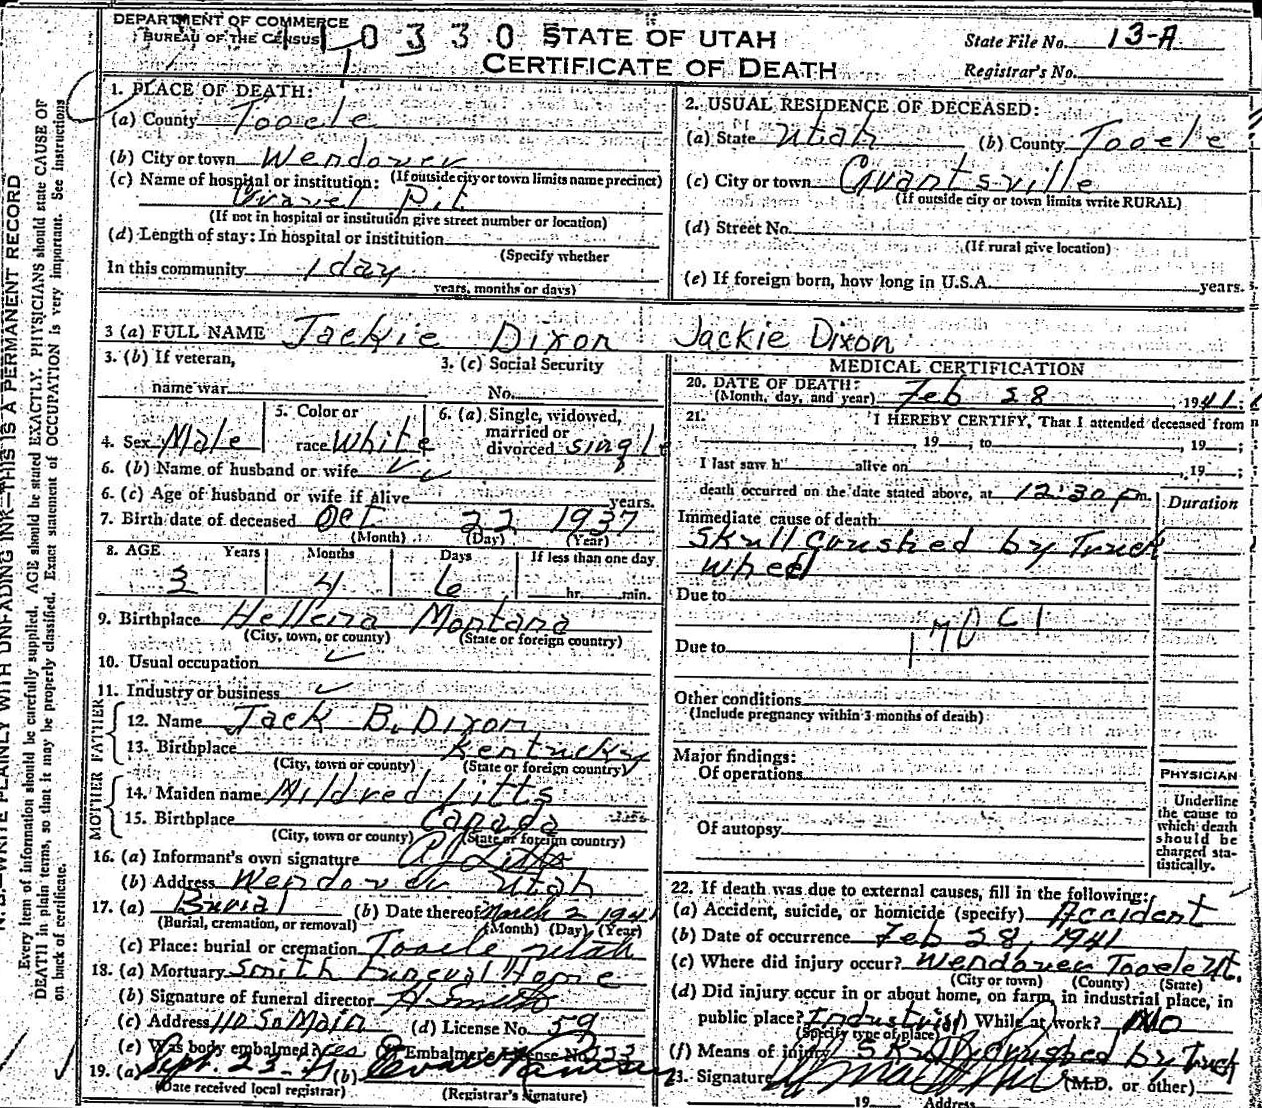 DEPARTMENT OF COMMERCE
BUREAU OF THE CENSUS
0330
STATE OF UTAH
CERTIFICATE OF DEATH
State File No. 13-A
Registrar's No.
N. B.—WRITE PLAINLY WITH UNFADING INK—THIS IS A PERMANENT RECORD
Every item of information should be carefully supplied. AGE should be stated EXACTLY. PHYSICIANS should state CAUSE OF
DEATH in plain terms, so that it may be properly classified. Exact statement of OCCUPATION is very important. See instructions
on back of certificate.
1. PLACE OF DEATH:
(a) County Tooele
(b) City or town Wendover
(If outside city or town limits name precinct)
(c) Name of hospital or institution:
Gravel Pit
(If not in hospital or institution give street number or location)
(d) Length of stay: In hospital or institution
(Specify whether
In this community 1 day
years, months or days)
2. USUAL RESIDENCE OF DECEASED:
(a) State Utah (b) County Tooele
(c) City or town Grantsville
(If outside city or town limits write RURAL)
(d) Street No.
(If rural give location)
(e) If foreign born, how long in U.S.A. years.
3 (a) FULL NAME Jackie Dixon Jackie Dixon
3. (b) If veteran,
name war
3. (c) Social Security
No.
4. Sex Male
5. Color or
race White
6. (a) Single, widowed,
married or
divorced single
6. (b) Name of husband or wife
6. (c) Age of husband or wife if alive years.
7. Birth date of deceased Oct 22 1937
(Month) (Day) (Year)
8. AGE Years Months Days If less than one day
3 4 6 hr. min.
9. Birthplace Hellena Montana
(City, town, or county) (State or foreign country)
10. Usual occupation
11. Industry or business
FATHER
12. Name Jack B. Dixon
13. Birthplace Kentucky
(City, town or county) (State or foreign country)
MOTHER
14. Maiden name Mildred Litts
15. Birthplace Canada
(City, town or county) (State or foreign country)
16. (a) Informant's own signature Litts
(b) Address Wendover Utah
17. (a) Burial (b) Date thereof March 2 1941
(Burial, cremation, or removal) (Month) (Day) (Year)
(c) Place: burial or cremation Tooele Utah
18. (a) Mortuary Smith Funeral Home
(b) Signature of funeral director
(c) Address 110 So Main (d) License No. 59
(e) Was body embalmed? Yes Embalmer's License No. 223
19. (a) Sept. 23-41 (b)
(Date received local registrar) (Registrar's Signature)
MEDICAL CERTIFICATION
20. DATE OF DEATH:
(Month, day, and year) Feb 28, 1941;
21. I HEREBY CERTIFY, That I attended deceased from
19 , to , 19 ;
I last saw h alive on , 19 ;
death occurred on the date stated above, at 12:30 pm.
Duration
Immediate cause of death
Skull crushed by Truck
wheel
Due to
Due to
Other conditions
(Include pregnancy within 3 months of death)
Major findings:
Of operations
Of autopsy
PHYSICIAN
Underline
the cause to
which death
should be
charged sta-
tistically.
22. If death was due to external causes, fill in the following:
(a) Accident, suicide, or homicide (specify) Accident
(b) Date of occurrence Feb 28, 1941
(c) Where did injury occur? Wendover Tooele Ut.
(City or town) (County) (State)
(d) Did injury occur in or about home, on farm, in industrial place, in
public place? Industrial While at work? No
(Specify type of place)
(f) Means of injury Skull crushed by Truck
23. Signature (M.D. or other)
19 Address